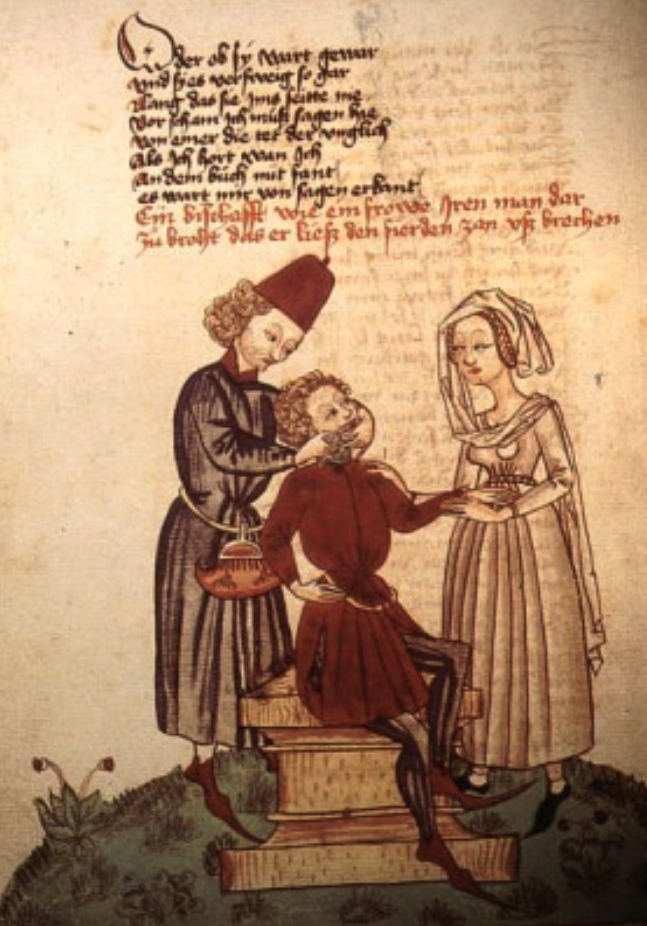 Oder ob sÿ wart gewar
vnd sÿ es versweig so gar
Lang das sie Ims seitte nie
Vor scham Ich muß sagen hie
von einer die tet der vnglich
Als Ich hort wan Ich
An dem buch mit fant
es wart mir von sagen erkant
Ein bischafft wie ein frowe Iren man dar
zů broht das er ließ den zan vß brechen